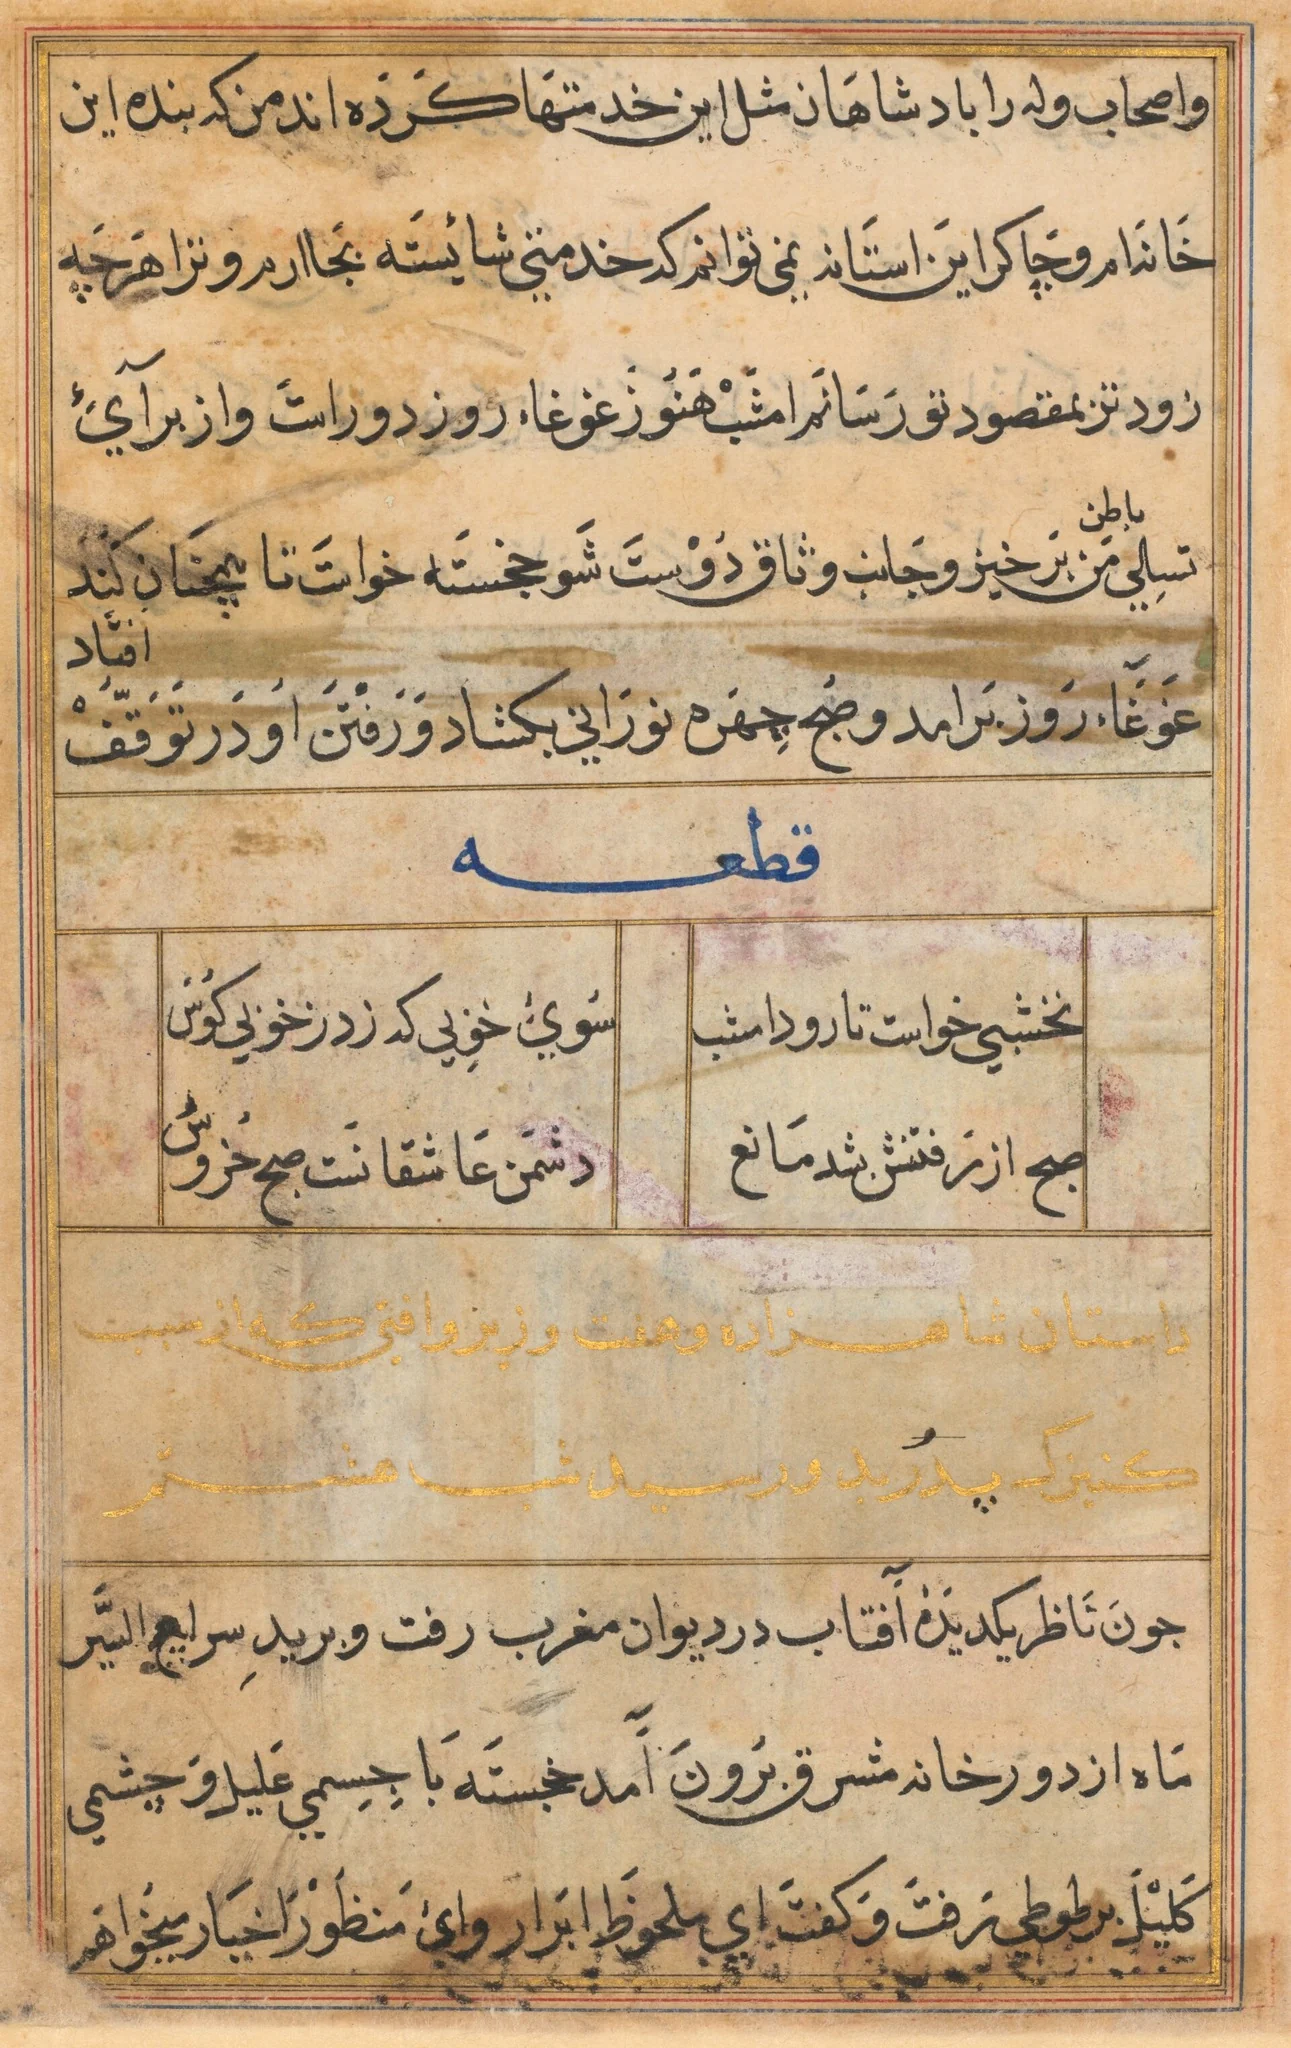 واصحاب وله را بادشاهان مثل این خدمتها کرده اند من که بنده این
خاندام و چاکر این استانه نمی توانم که خدمتی شایسته بجا ارم و ترا هرچه
زود تر بمقصود تو رسانم امشب هنوز غوغاء روز دور است و از برآی
باطن
تسلی من برخیز و جانب وثاق دوست شو خجسته خواست تا همچنان کند
غوغاء روز برامد و صبح چهره نورانی بکشاد و رفتن او در توقف
افتاد
قطعه
نخشبی خواست تا رود امشب
سوی خوبی که زد ز خوبی کوس
صبح از رفتنش شد مانع
دشمن عاشقانست صبح خروس
داستان شاهزاده و هفت وزیر و افتی که از سبب
کنیزک پدر بدو رسید شب هشتم
چون ناظر یکدیده آفتاب در دیوان مغرب رفت و برید سریع السیر
ماه از دورخانه مشرق برون آمد خجسته با جسمی علیل و چشمی
کلیل بر طوطی رفت و کفت ای ملحوظ ابرار وای منظور اخیار میخواهم